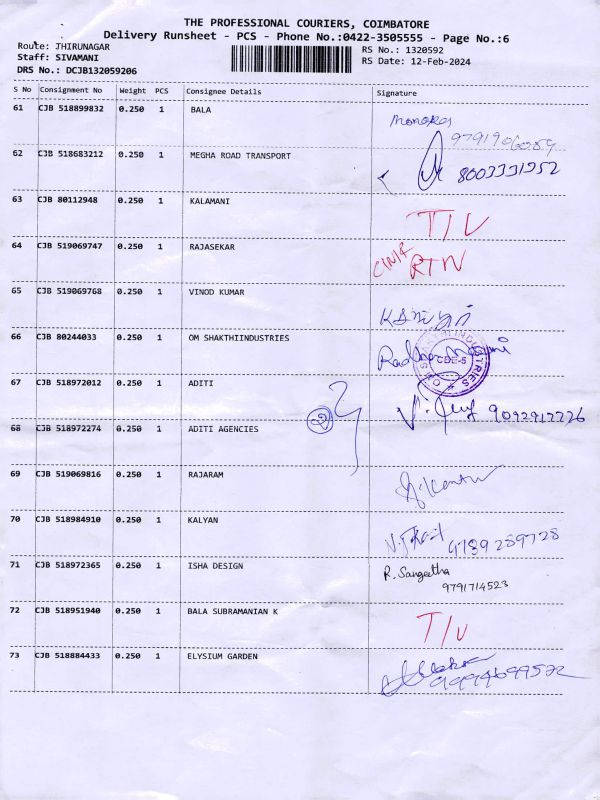 THE PROFESSIONAL COURIERS, COIMBATORE
Delivery Runsheet - PCS - Phone No.:0422-3505555 - Page No.:6
Route: JHIRUNAGAR
Staff: SIVAMANI
DRS No.: DCJB132059206
RS No.: 1320592
RS Date: 12-Feb-2024
S No Consignment No Weight PCS Consignee Details Signature
61 CJB 518899832 0.250 1 BALA
62 CJB 518683212 0.250 1 MEGHA ROAD TRANSPORT 8003331952
63 CJB 80112948 0.250 1 KALAMANI T/U
64 CJB 519069747 0.250 1 RAJASEKAR RTN
65 CJB 519069768 0.250 1 VINOD KUMAR
66 CJB 80244033 0.250 1 OM SHAKTHIINDUSTRIES
67 CJB 518972012 0.250 1 ADITI
9092912226
68 CJB 518972274 0.250 1 ADITI AGENCIES 2
69 CJB 519069816 0.250 1 RAJARAM
70 CJB 518984910 0.250 1 KALYAN 9789289728
71 CJB 518972365 0.250 1 ISHA DESIGN R. Sangeetha
9791714523
72 CJB 518951940 0.250 1 BALA SUBRAMANIAN K T/U
73 CJB 518884433 0.250 1 ELYSIUM GARDEN